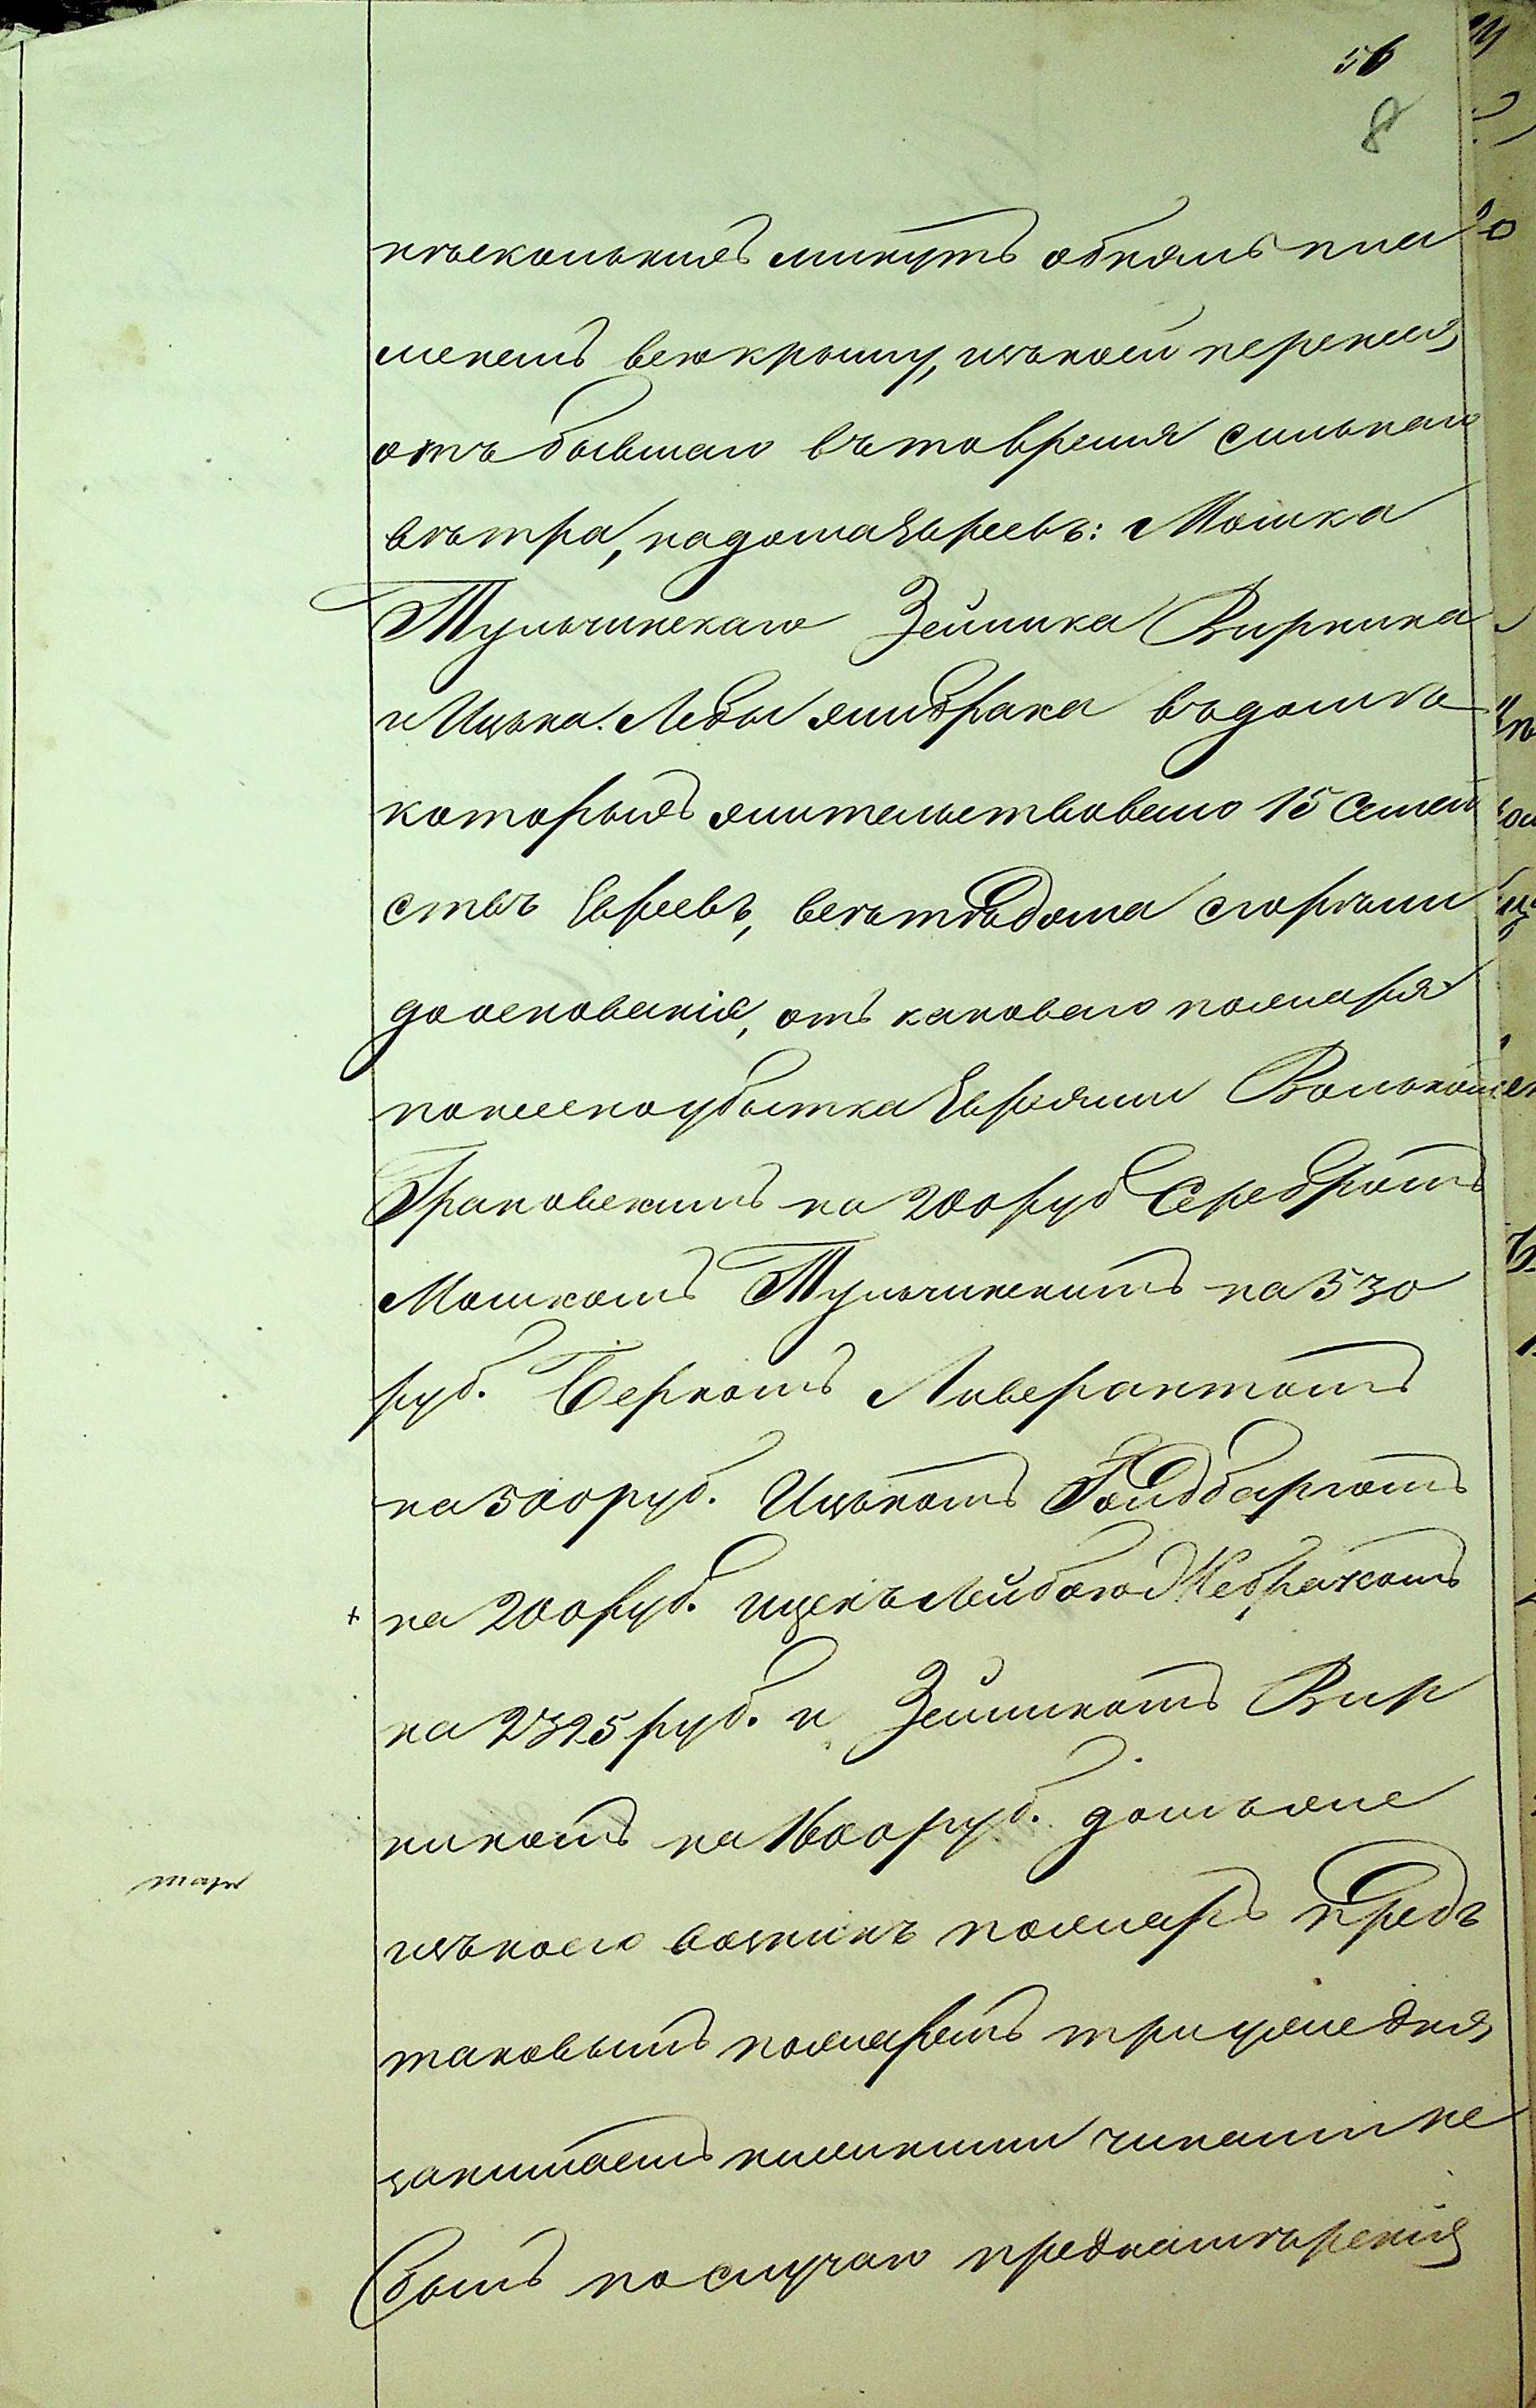 56
8
нѣсколькихъ минутъ обнялъ пла
менемъ всю крышу, изъ коей перенесся
отъ бывшаго въ то время сильнаго
вѣтра, на дома Евреевъ: Мошка
Тульчинскаго Зейлика Вирника
и Ицька Лебы Жибрака въ домѣ
которыхъ жительствовало 15 Семей
ствъ Евреевъ, всѣ тѣ дома сгорѣли
до основанія, отъ каковаго пожара
понесено убытка Евреями Волькомъ
Грановскимъ на 200 руб Серебромъ
Мошкомъ Тульчинскимъ на 530
руб. Беркомъ Ливерантомъ
на 500 руб. Ицькомъ Гольдбаргомъ
на 200 руб. Ицекъ Лейбою Жебракомъ
на 2325 руб. и Зейликомъ Вир
никомъ на 1600 руб. домъ же
изъ коего возникъ пожаръ предъ
таковымъ пожаромъ три уже дня
занимаемъ никакими чинами не
былъ по случаю